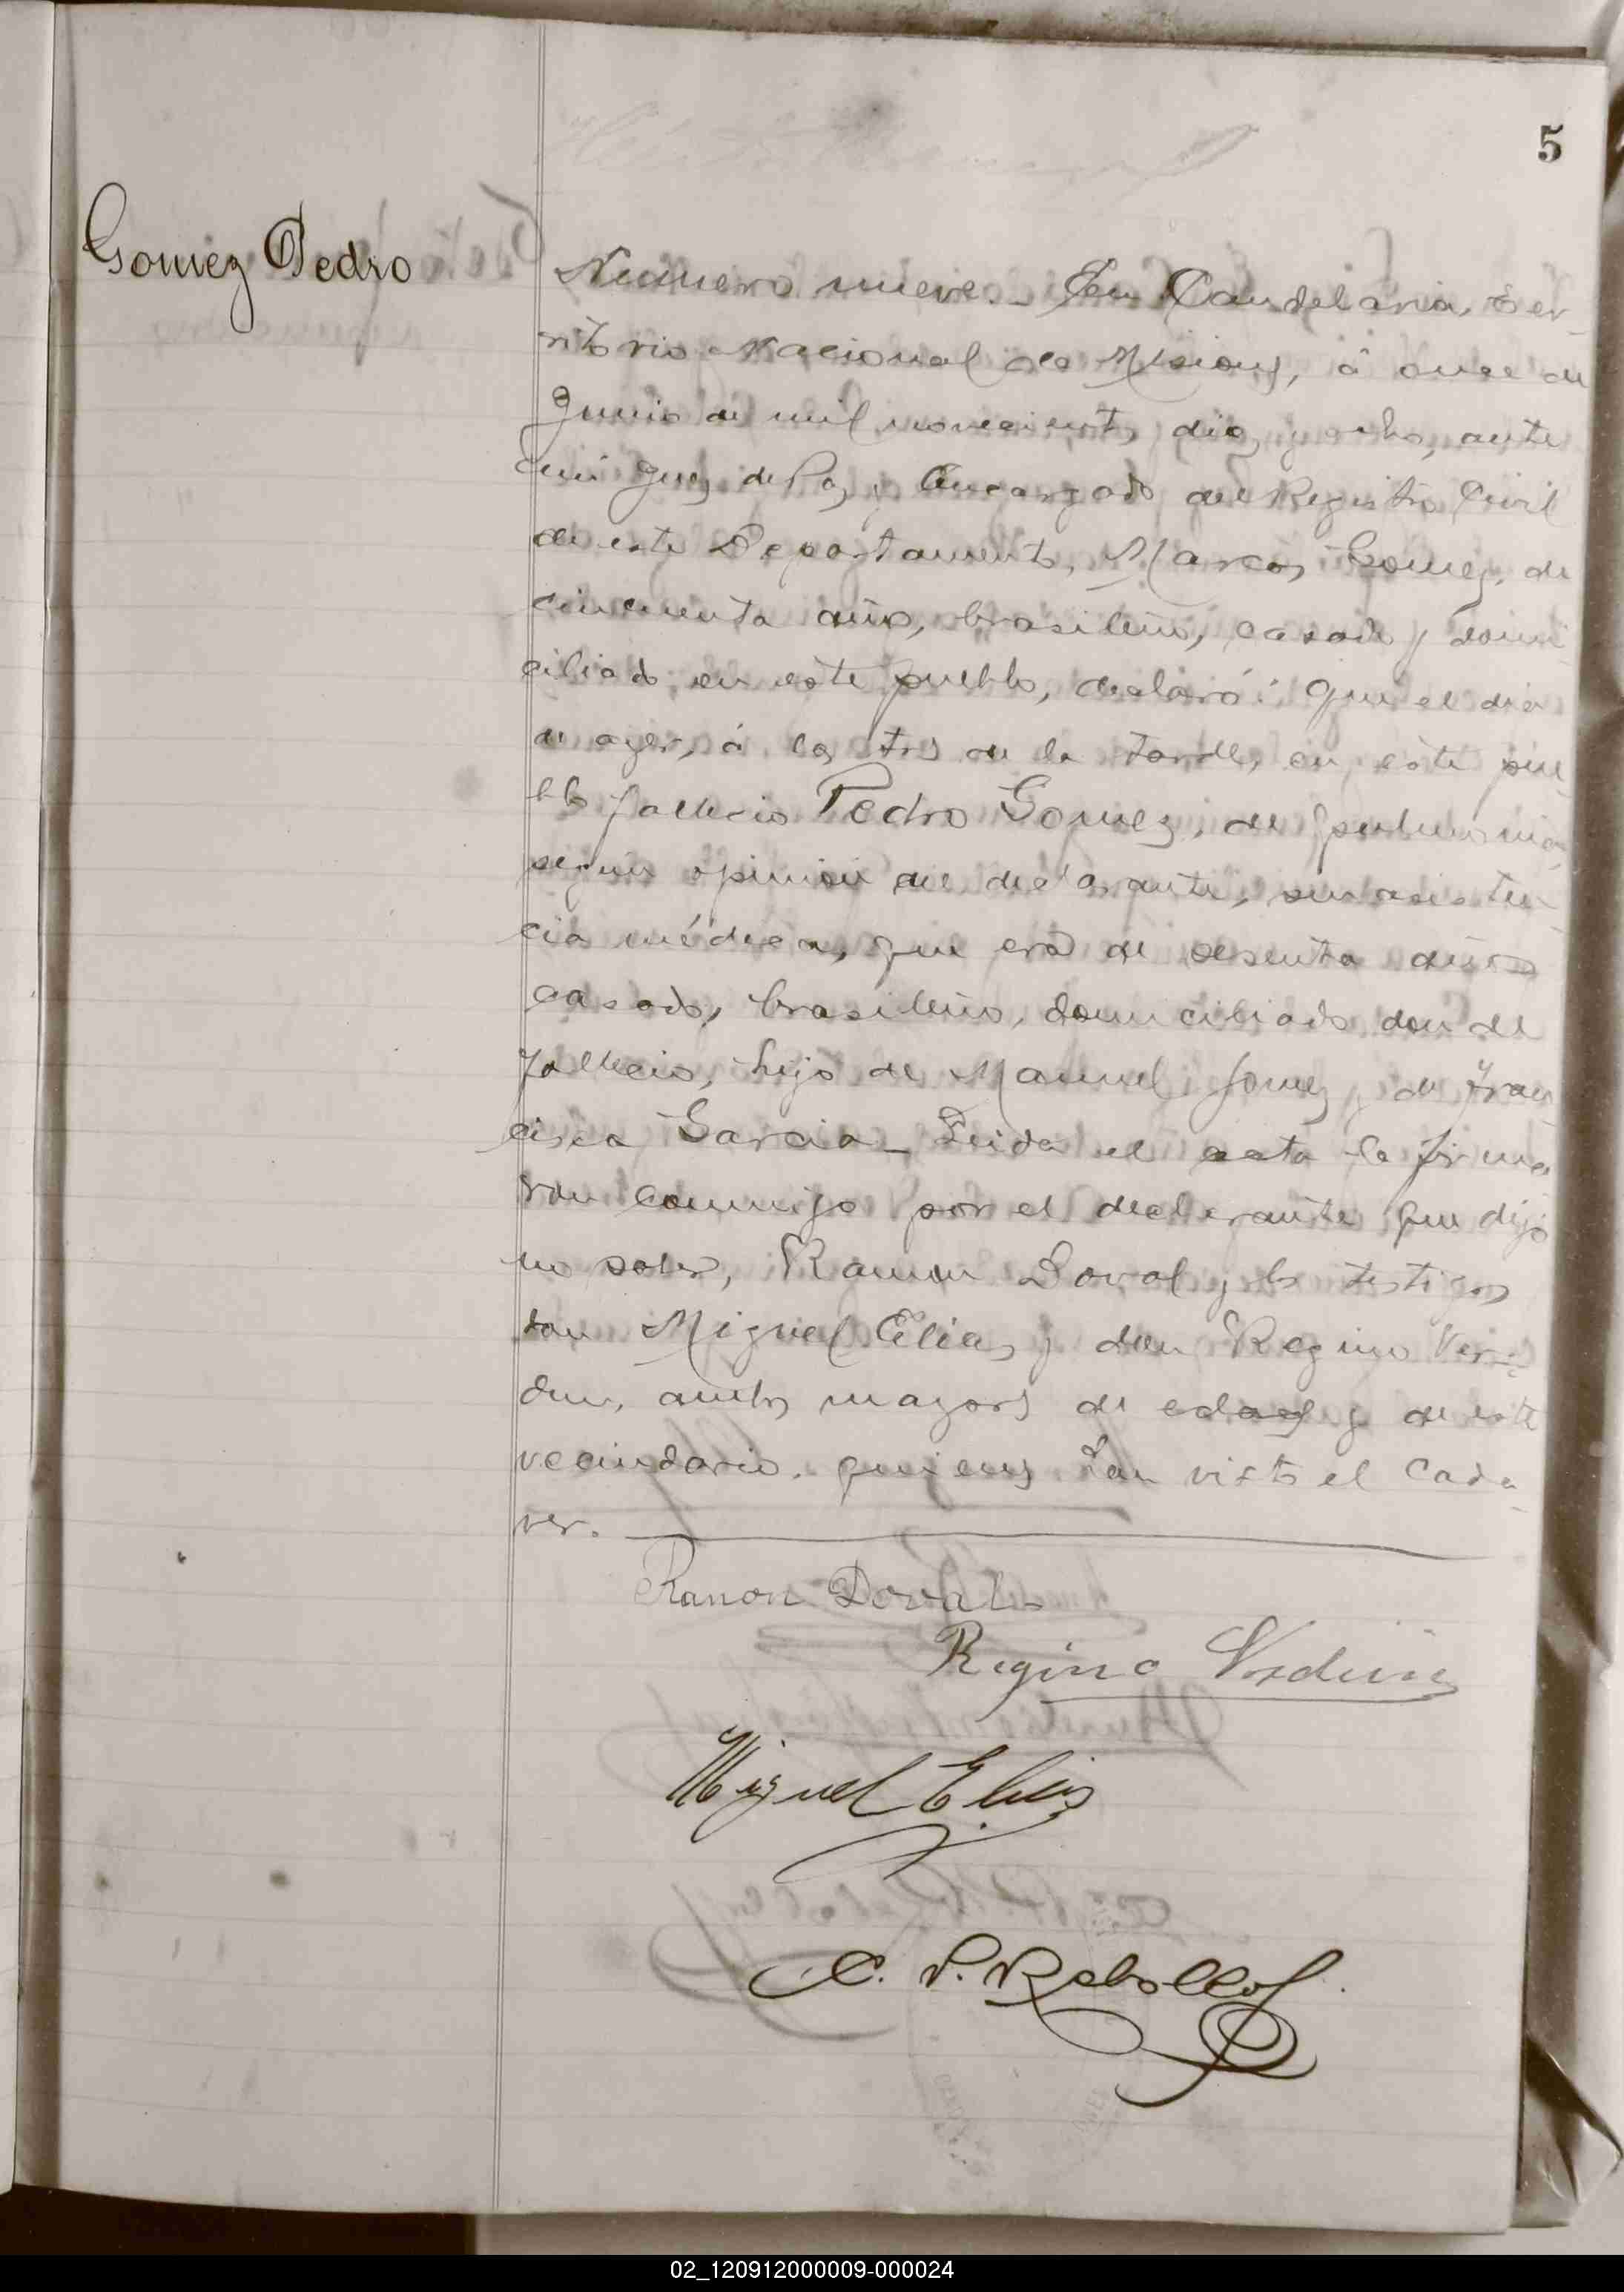 5
Gomez Pedro
Numero nueve. En Candelaria, Ter-
ritorio Nacional de Misiones, á once de
Junio de mil novecientos diez y ocho, ante
mi Juez de Paz y Encargado del Registro Civil
de este Departamento, Marcos Gomez, de
cincuenta años, brasilero, casado y domi-
ciliado en este pueblo, declaró: Que el dia
de ayer, á las tres de la tarde, en este pue-
blo fallecio Pedro Gomez, de pulmonia,
segun opinion del declarante, sin asisten-
cia médica, que era de sesenta años
casado, brasilero, domiciliado donde
fallecio, hijo de Manuel Gomez y de Fran-
cisca Garcia. Leida el acta la firma
ron conmigo por el declarante que dijo
no saber, Ramon Doval y los testigos
don Miguel Elias y don Regino Ver-
dun, ambos mayores de edad y de este
vecindario, quienes han visto el cada-
ver.
Ramon Doval
Regino Verdun
Miguel Elias
C. P. Rebollo
02_120912000009-000024